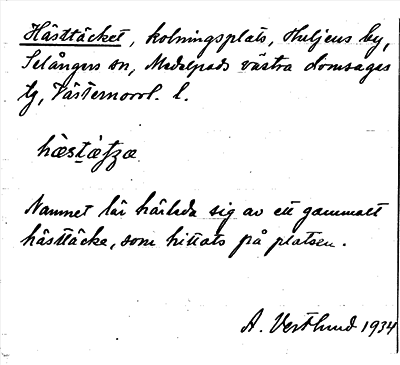 Hästtäcket, kolningsplats, Huljens by,
Selångers sn, Medelpads västra domsagas
tg, Västernorrl. l.
hæstæ̀fza
Namnet lär härleda sig av ett gammalt
hästtäcke, som hittats på platsen.
A. Vestlund 1934